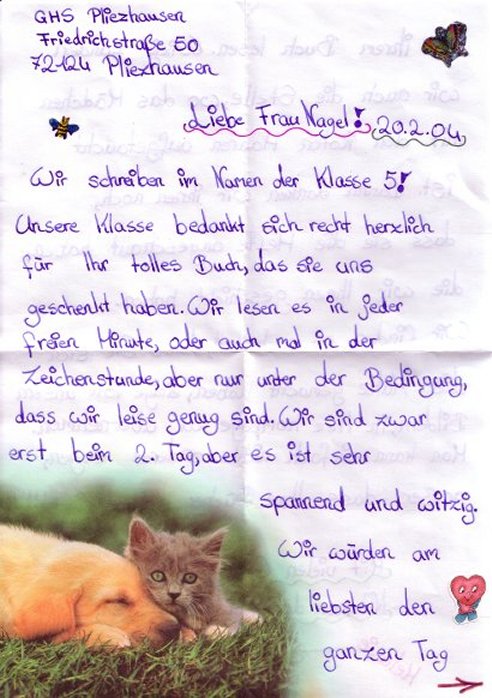 GHS Pliezhausen
Friedrichstraße 50
72124 Pliezhausen
Liebe Frau Nagel! 20.2.04
Wir schreiben im Namen der Klasse 5!
Unsere Klasse bedankt sich recht herzlich
für Ihr tolles Buch, das sie uns
geschenkt haben. Wir lesen es in jeder
freien Minute, oder auch mal in der
Zeichenstunde, aber nur unter der Bedingung,
dass wir leise genug sind. Wir sind zwar
erst beim 2. Tag, aber es ist sehr
spannend und witzig.
Wir würden am
liebsten den
ganzen Tag